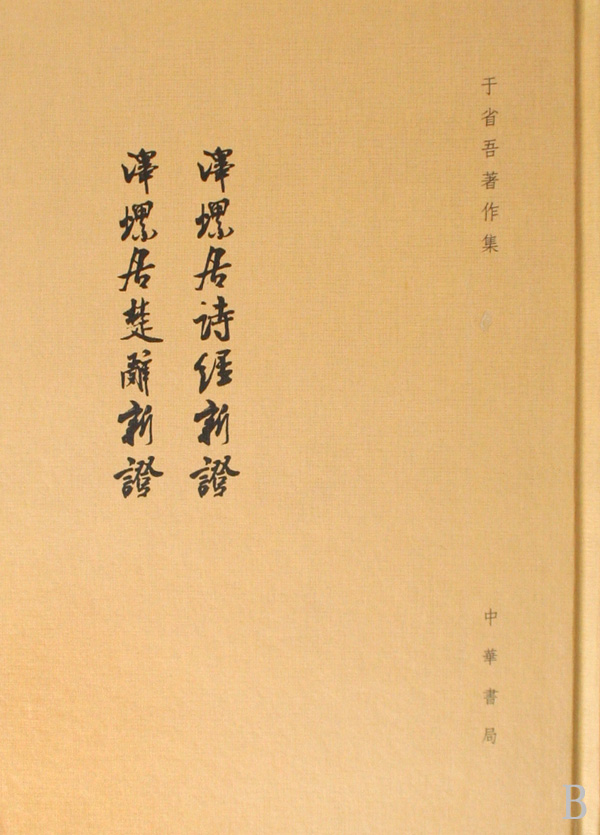 于省吾著作集
澤螺居詩經新證
澤螺居楚辭新證
中華書局
B